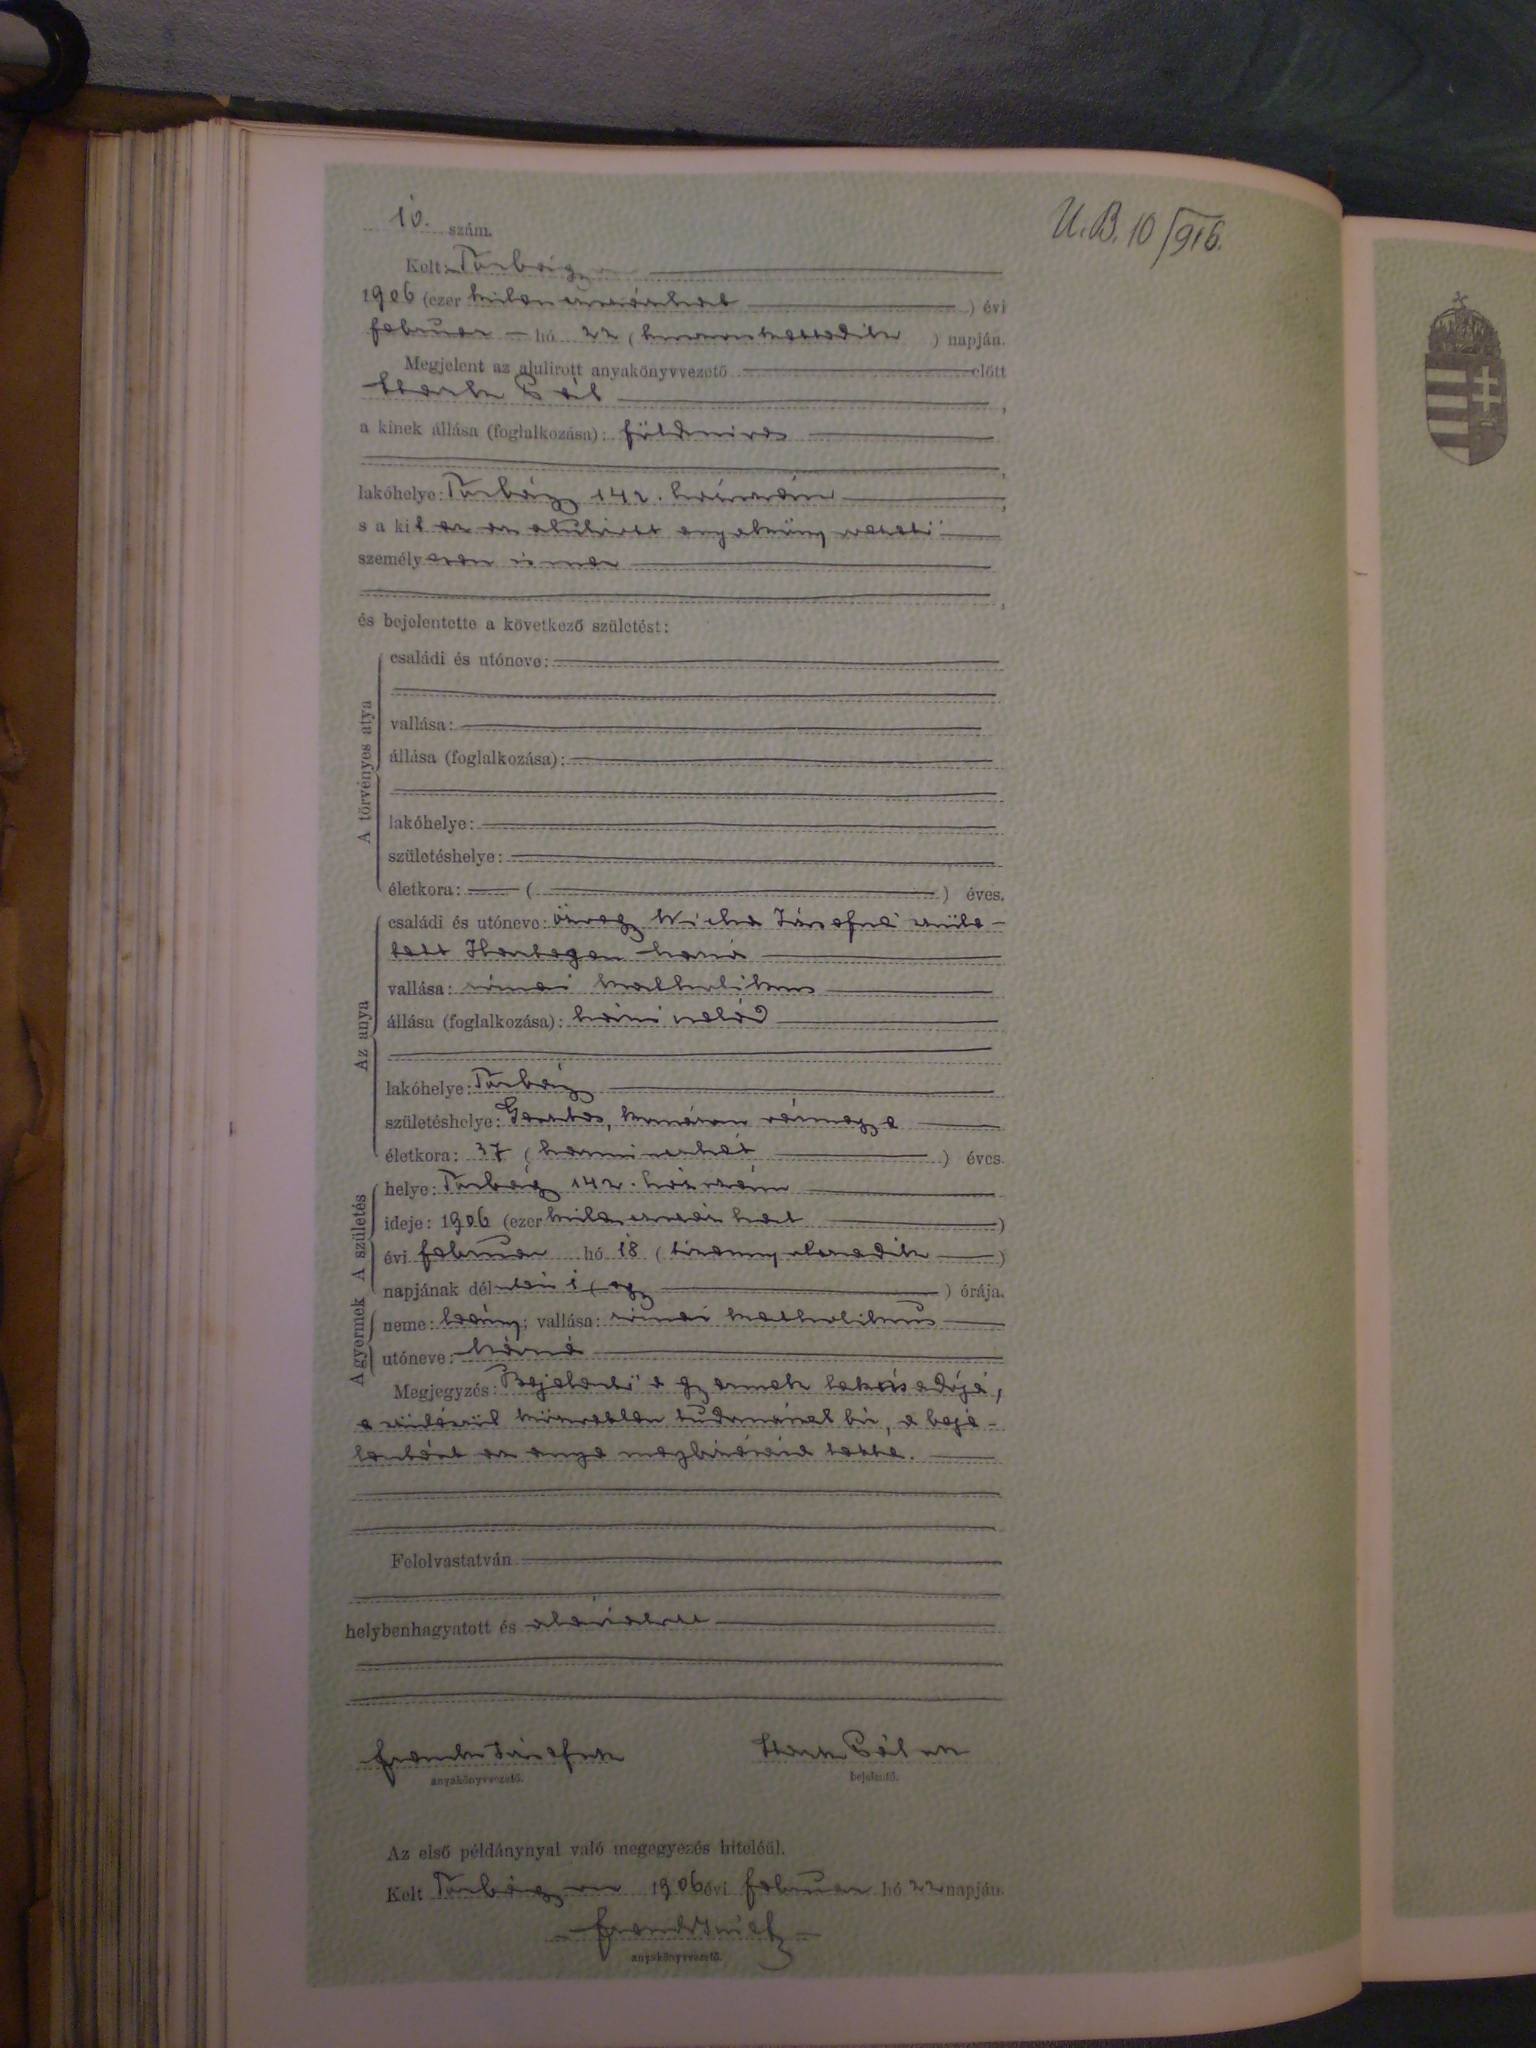 10. szám.
U. B. 10/916.
Kelt: Törbágy
1906 (ezer kilenczszázhat) évi
február hó 22 (huszonkettedik) napján.
Megjelent az alulirott anyakönyvvezető előtt
Pál,
a kinek állása (foglalkozása): földmives
lakóhelye: Törbágy 142. házszám,
s a kit az az alulirott anyakönyvvezető
személyesen ismer,
és bejelentette a következő születést:
A törvényes atya
családi és utóneve:
vallása:
állása (foglalkozása):
lakóhelye:
születéshelye:
életkora: ( ) éves.
Az anya
családi és utóneve: özvegy Józsefné szüle-
tett
vallása: római katholikus
állása (foglalkozása): házi cseléd
lakóhelye: Törbágy
születéshelye: komárom vármegye
életkora: 37 (harminczhét) éves.
A születés
helye: Törbágy 142. házszám
ideje: 1906 (ezer kilenczszázhat)
évi február hó 18 (tizennyolczadik)
napjának délutáni 1 (egy) órája.
A gyermek
neme: leány; vallása: római katholikus
utóneve: Mária
Megjegyzés: Bejelentő a gyermek lakásadója,
a szülésről közvetlen tudomással bir, a beje-
lentést az anya megbizásából tette.
Felolvastatván
helybenhagyatott és aláiratott
József
anyakönyvvezető.
Pál
bejelentő.
Az első példánynyal való megegyezés hiteléül.
Kelt Törbágyon 1906 évi február hó 22 napján.
anyakönyvvezető.